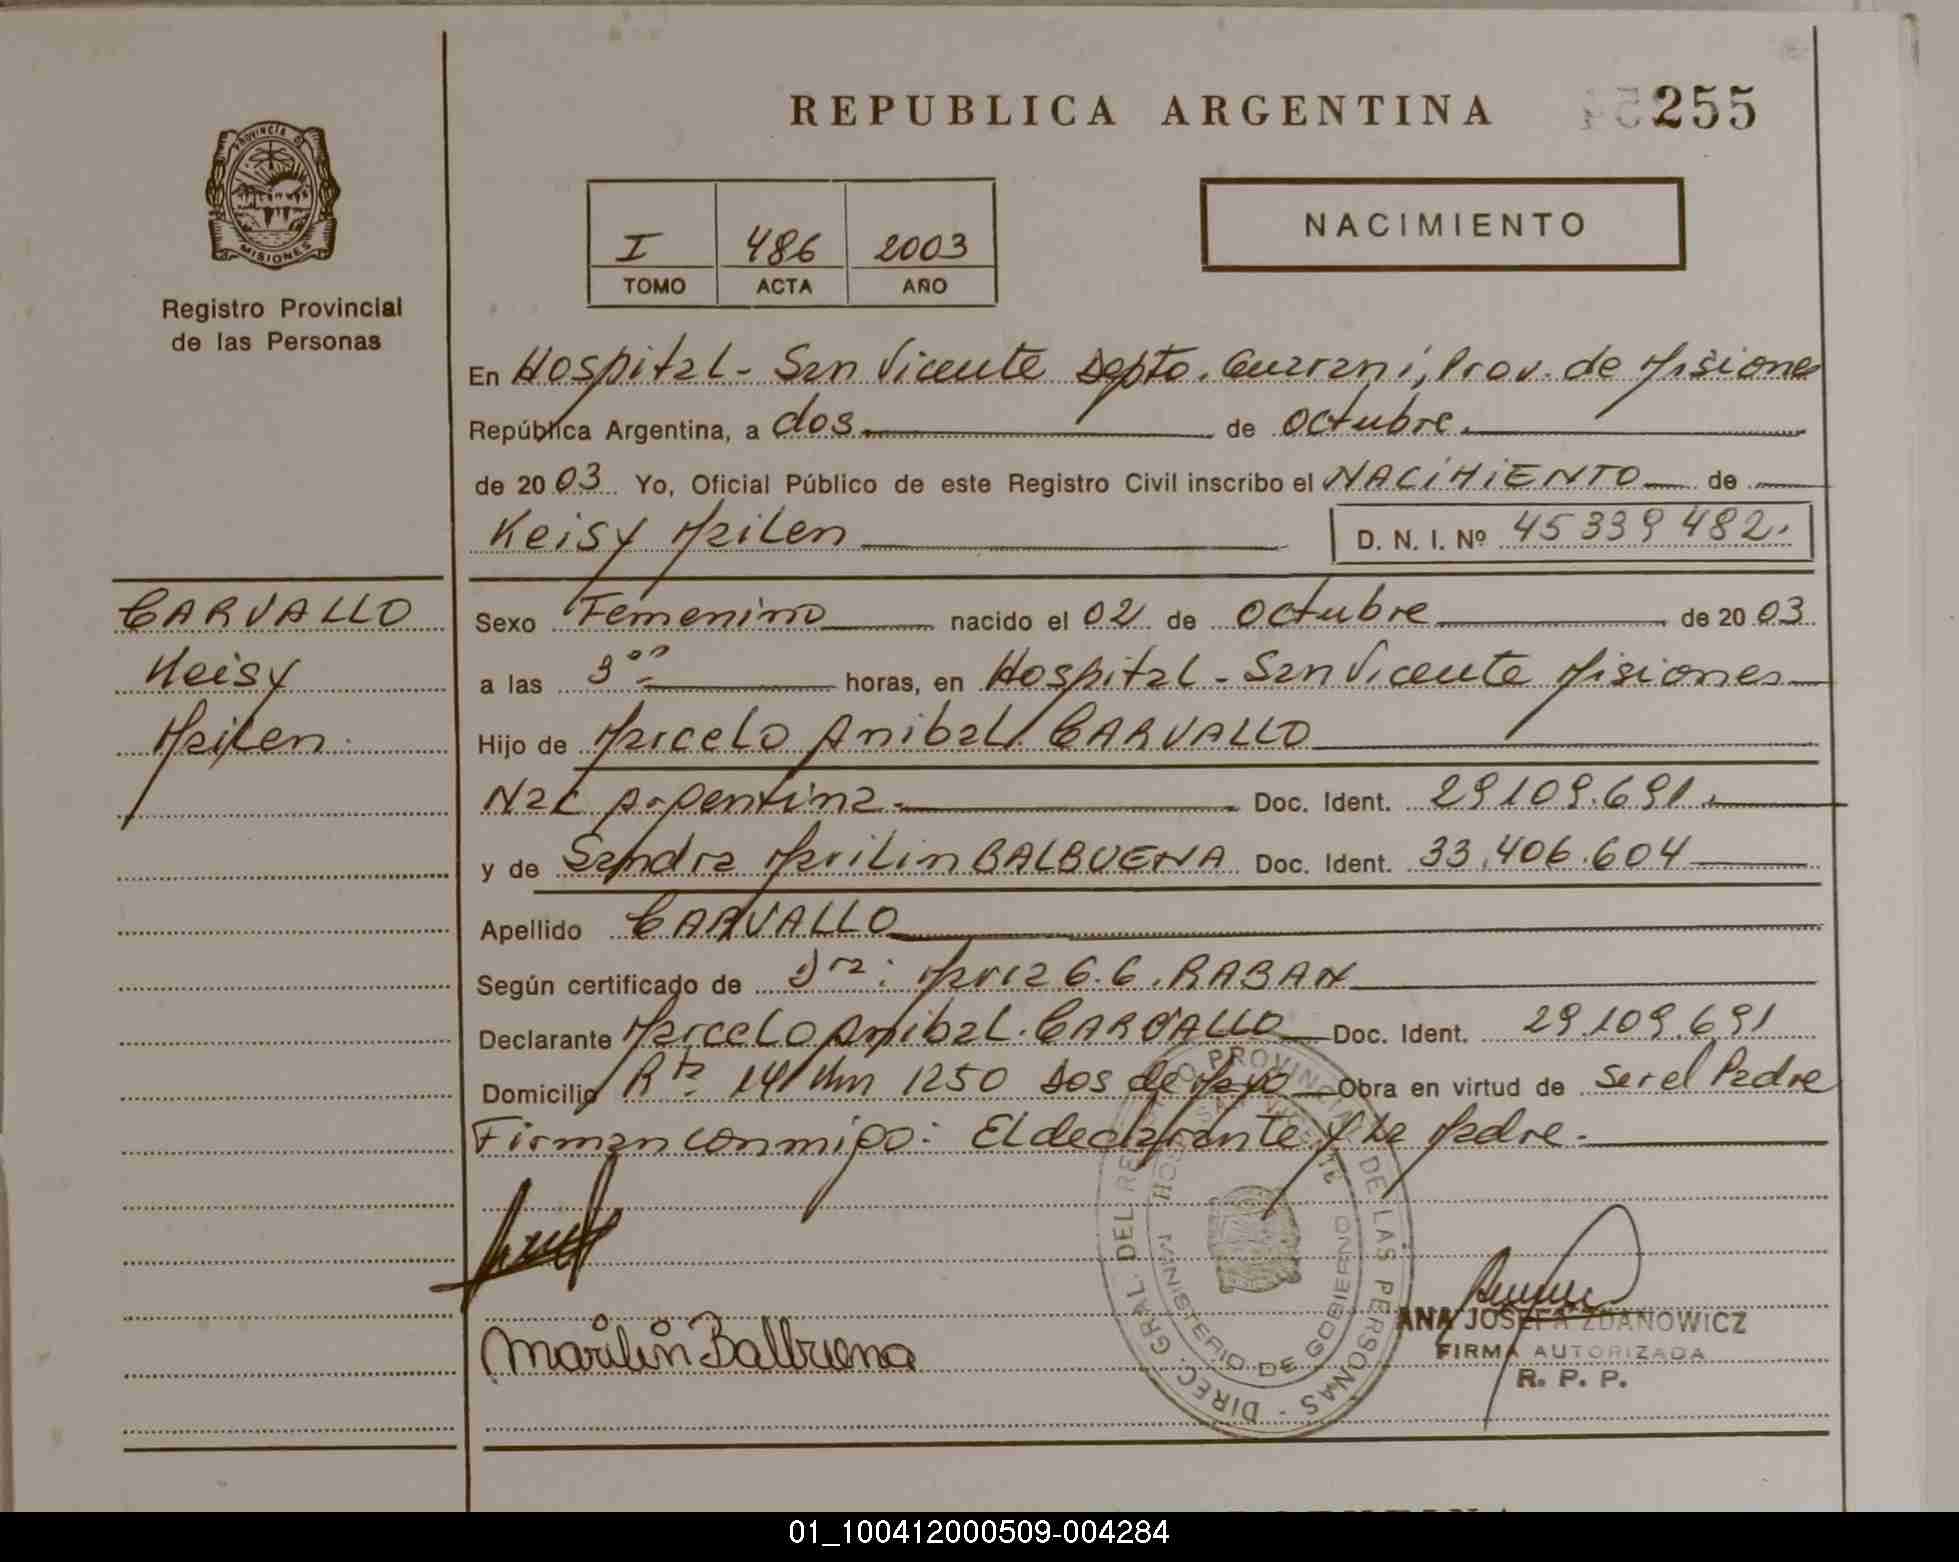 REPUBLICA ARGENTINA
255
PROVINCIA DE
MISIONES
Registro Provincial
de las Personas
I 486 2003
TOMO ACTA AÑO
NACIMIENTO
En Hospital - San Vicente Depto. Guaraní, Prov. de Misiones
República Argentina, a dos de octubre.
de 2003. Yo, Oficial Público de este Registro Civil inscribo el NACIMIENTO de
Keisy Mailen D. N. I. Nº 45 339 482.
CARVALLO
Keisy
Mailen.
Sexo Femenino nacido el 02 de octubre de 2003
a las 3 horas, en Hospital - San Vicente Misiones
Hijo de Marcelo Anibal CARVALLO
Nac Argentina. Doc. Ident. 29.109.691.
y de Sandra Marilin BALBUENA Doc. Ident. 33.406.604
Apellido CARVALLO
Según certificado de Dra: María G. G. RABAN
Declarante Marcelo Anibal CARVALLO Doc. Ident. 29.109.691
Domicilio Rta 14 Km 1250 Dos de Mayo Obra en virtud de Ser el Padre
Firman conmigo: El declarante y La Madre.
Marilin Balbuena
DIREC. GRAL. DEL REGISTRO PROVINCIAL DE LAS PERSONAS
MINISTERIO DE GOBIERNO
ANA JOSEFA ZDANOWICZ
FIRMA AUTORIZADA
R. P. P.
01_100412000509-004284